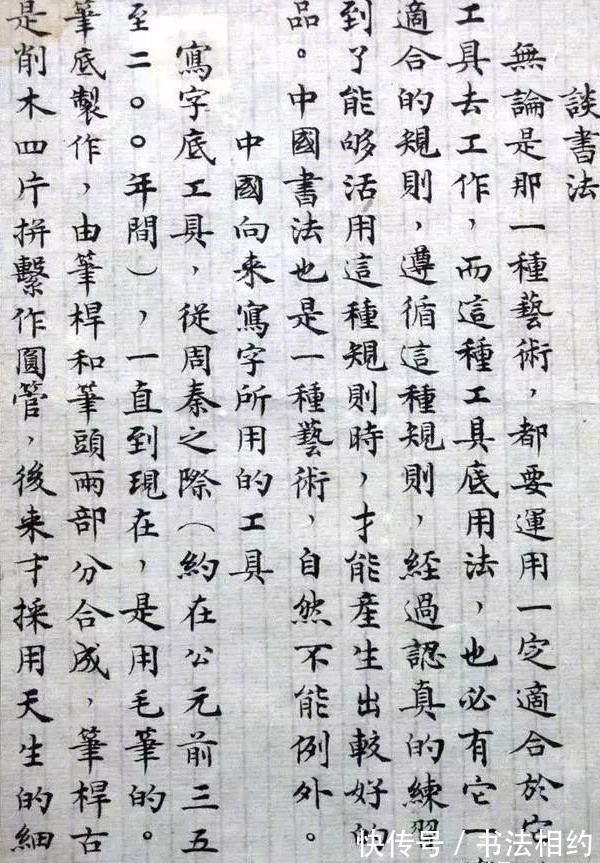 談書法
無論是那一種藝術，都要運用一定適合於它
工具去工作，而這種工具底用法，也必有它一
適合的規則，遵循這種規則，經過認真的練習
到了能够活用這種規則時，才能產生出較好的
品。中國書法也是一種藝術，自然不能例外。
中國向來寫字所用的工具
寫字底工具，從周秦之際（約在公元前三五
至二〇〇年間），一直到現在，是用毛筆的。
筆底製作，由筆桿和筆頭兩部分合成，筆桿古
是削木四片拼繫作圓管，後來才採用天生的細
快传号 / 书法相约